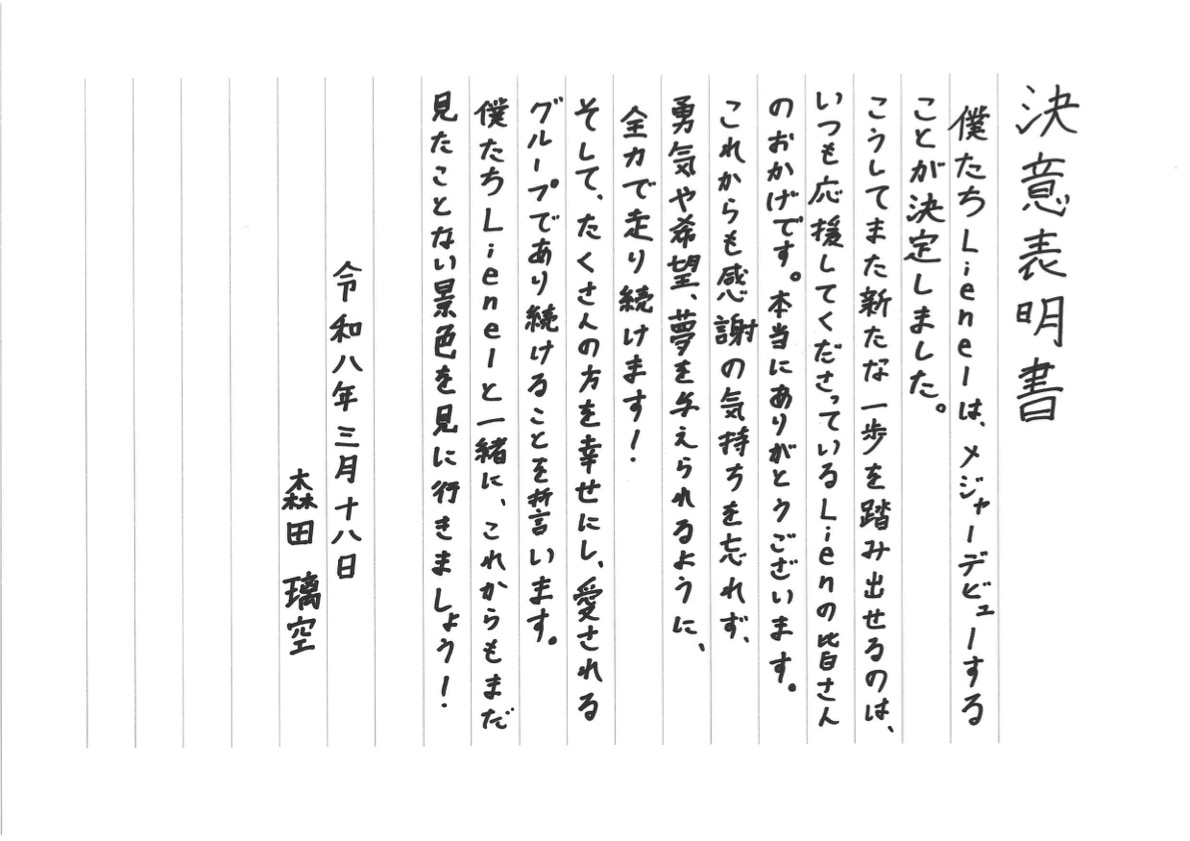 決意表明書
僕たちLienelは、メジャーデビューする
ことが決定しました。
こうしてまた新たな一歩を踏み出せるのは、
いつも応援してくださっているLienの皆さん
のおかげです。本当にありがとうございます。
これからも感謝の気持ちを忘れず、
勇気や希望、夢を与えられるように、
全力で走り続けます！
そして、たくさんの方を幸せにし、愛される
グループであり続けることを誓います。
僕たちLienelと一緒に、これからもまだ
見たことない景色を見に行きましょう！
令和八年三月十八日
森田 璃空